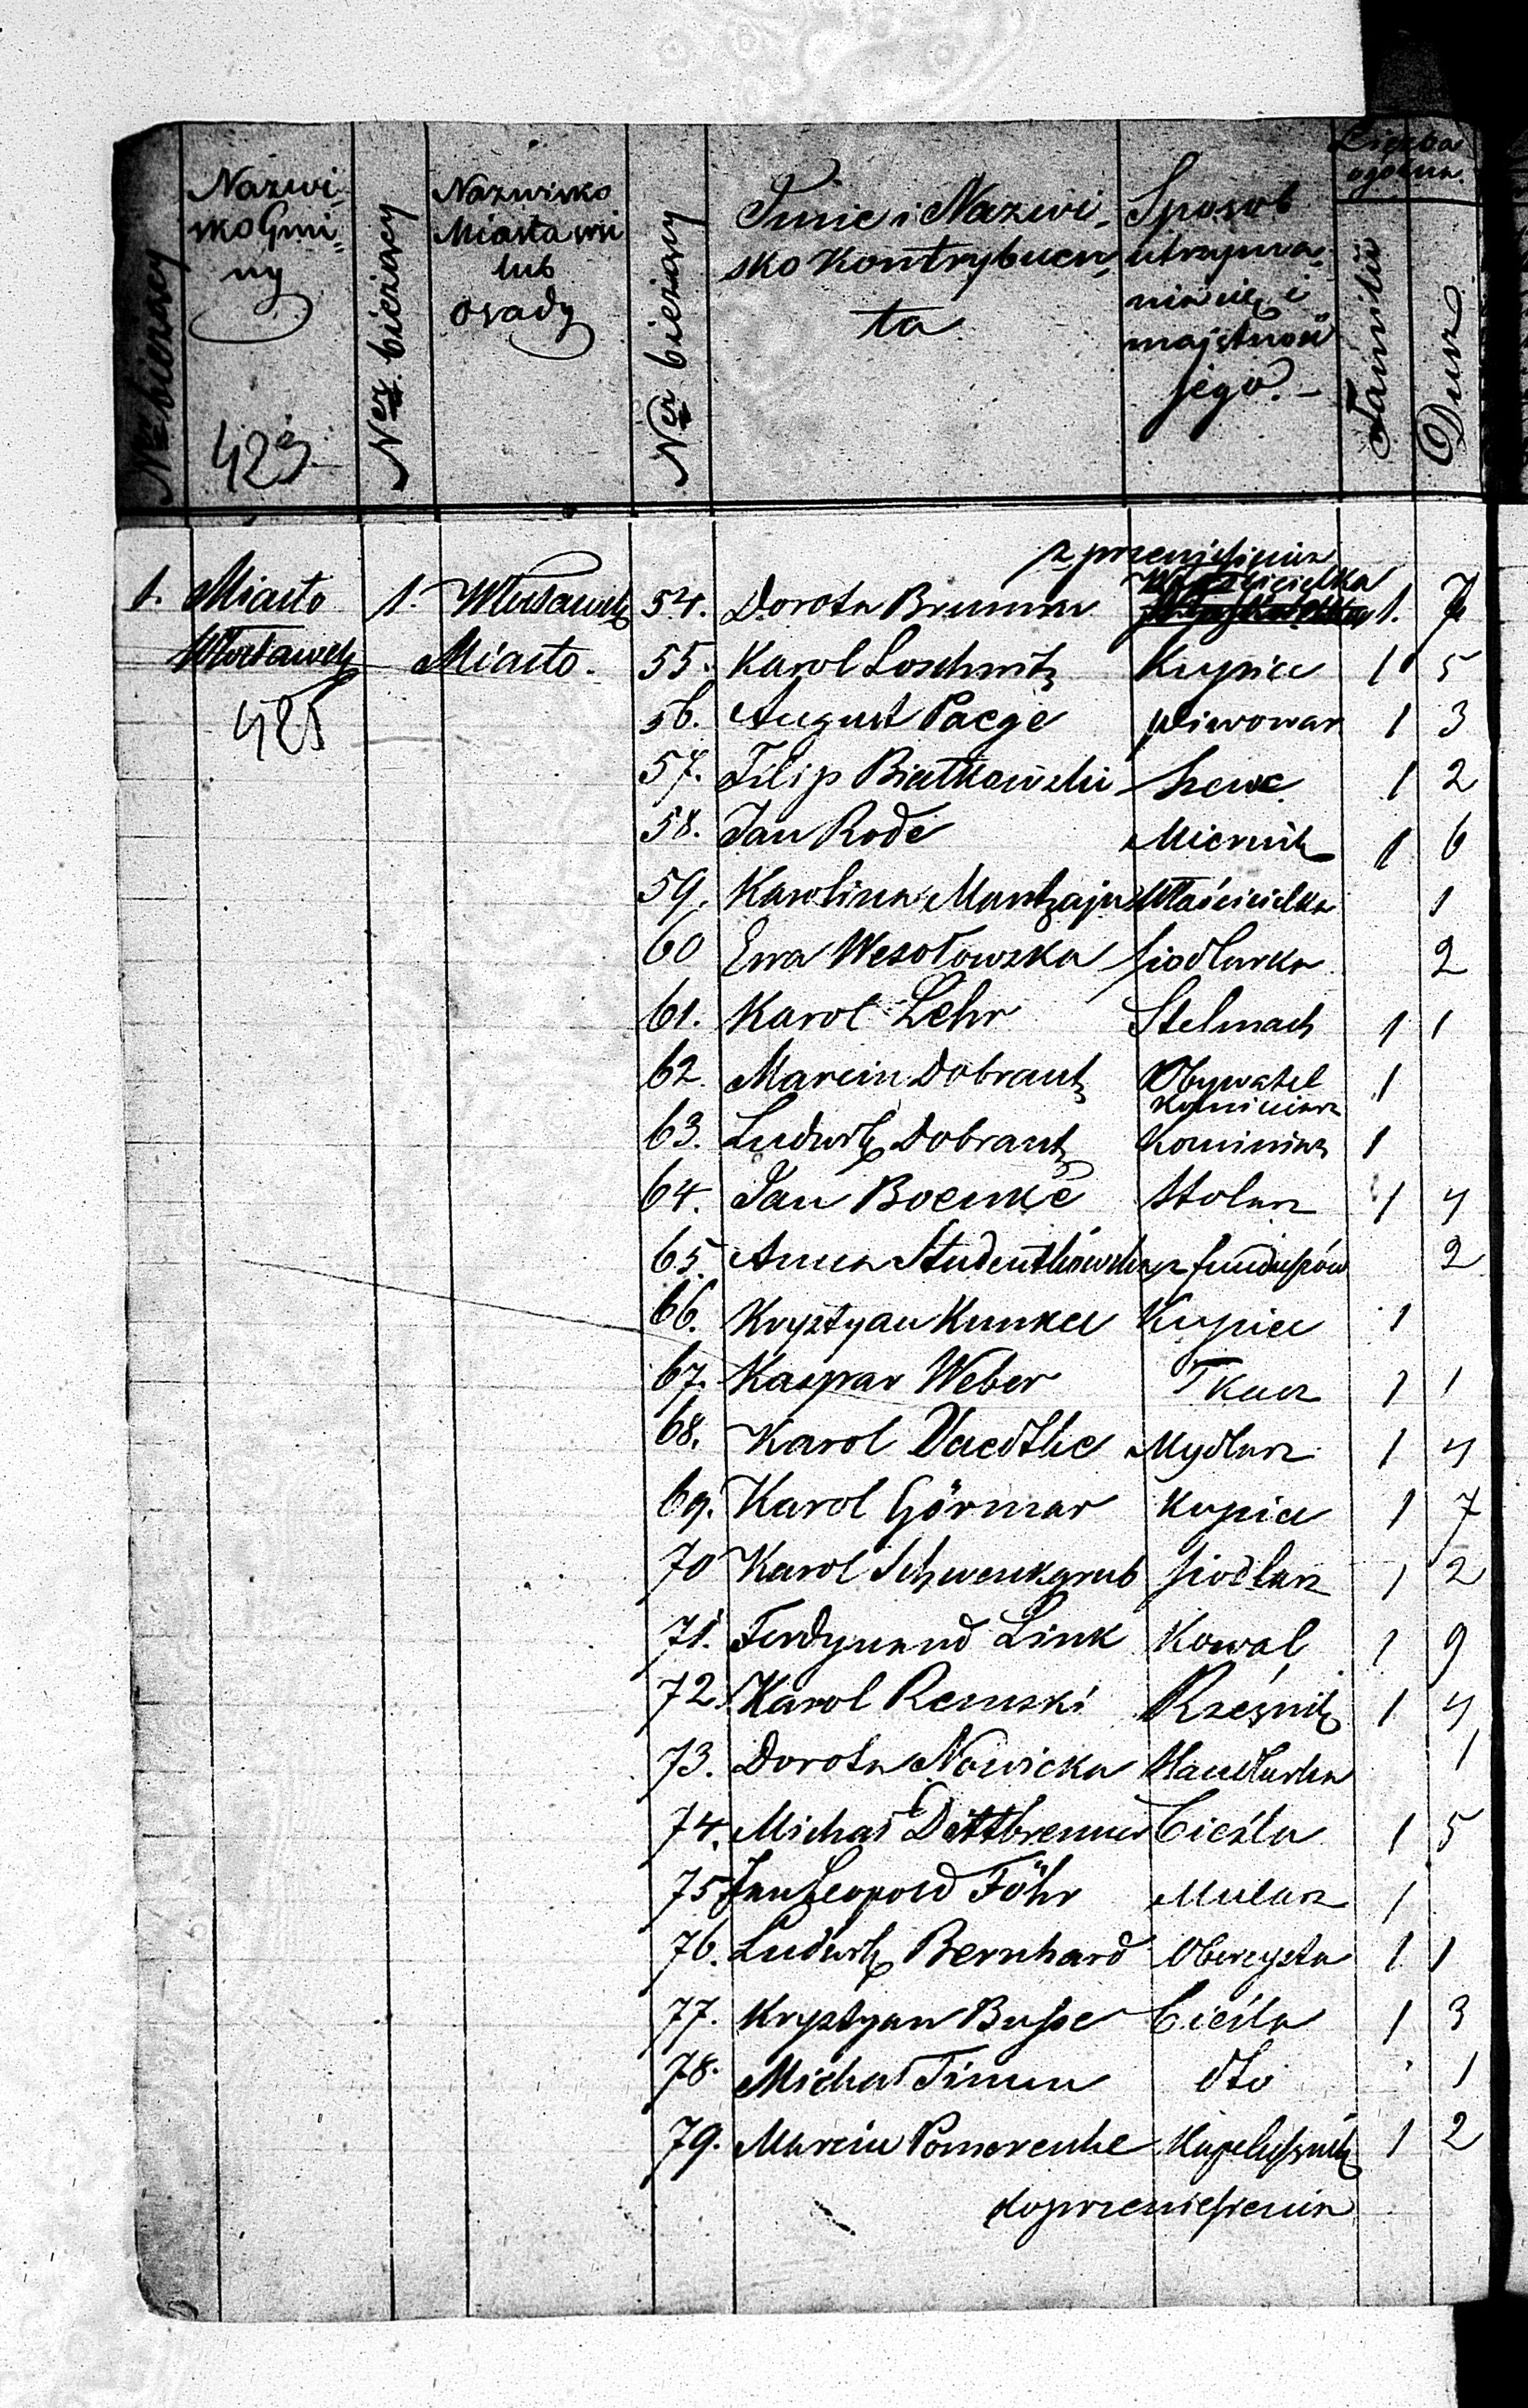 Nrr bieżący
Nazwi-
sko Gmi-
ny
423
Nrr bieżący
Nazwisko
Miasta wsi
lub
osady
Nrr bieżący
Imie i Nazwi-
sko Kontrybuen-
ta
Sposób
utrzyma-
nia się i
majętność
jego.-
Liczba
ogólna
Familii
Dusz
z przeniesienia
Właścicielka
1. Miasto 1. Włocławek 54. Dorota Brumm 1. 7
Włocławek Miasto. 55. Karol Loschnitz Kupiec 1 5
425 56. August Paege piwowar 1 3
57. Filip Białkowski Szewc 1 2
58. Jan Rode Miernik 1 6
59. Karolina Właścicielka 1
60 Ewa Wesołowska Siodlarka 2
61. Karol Lehr Stelmach 1 1
62. Marcin Dobrantz Obywatel 1
Kominiarz
63. Ludwik Dobrantz Kominiarz 1
64. Jan Boemke Stolarz 1 4
65. Anna Studentkowska z funduszów 2
66. Krysztyan Kunkel Kupiec 1
67. Kaspar Weber Tkacz 1 1
68. Karol Mydlarz 1 4
69. Karol Görmar Kupiec 1 7
70 Karol Schwenkgrub Siodlarz 1 2
71. Ferdynand Link Kowal 1 9
72. Karol Remski Rzeźnik 1 4
73. Dorota Nowicka Handlarka 1
74. Michał Dittbrenner Cieśla 1 5
75 Jan Leopold Föhr Mularz 1
76. Ludwik Bernhard Oberzysta 1 1
77. Krysztyan Busse Cieśla 1 3
78. Michał Timm dto 1
79. Marcin Pomerenke Kapelusznik 1 2
do przeniesienia